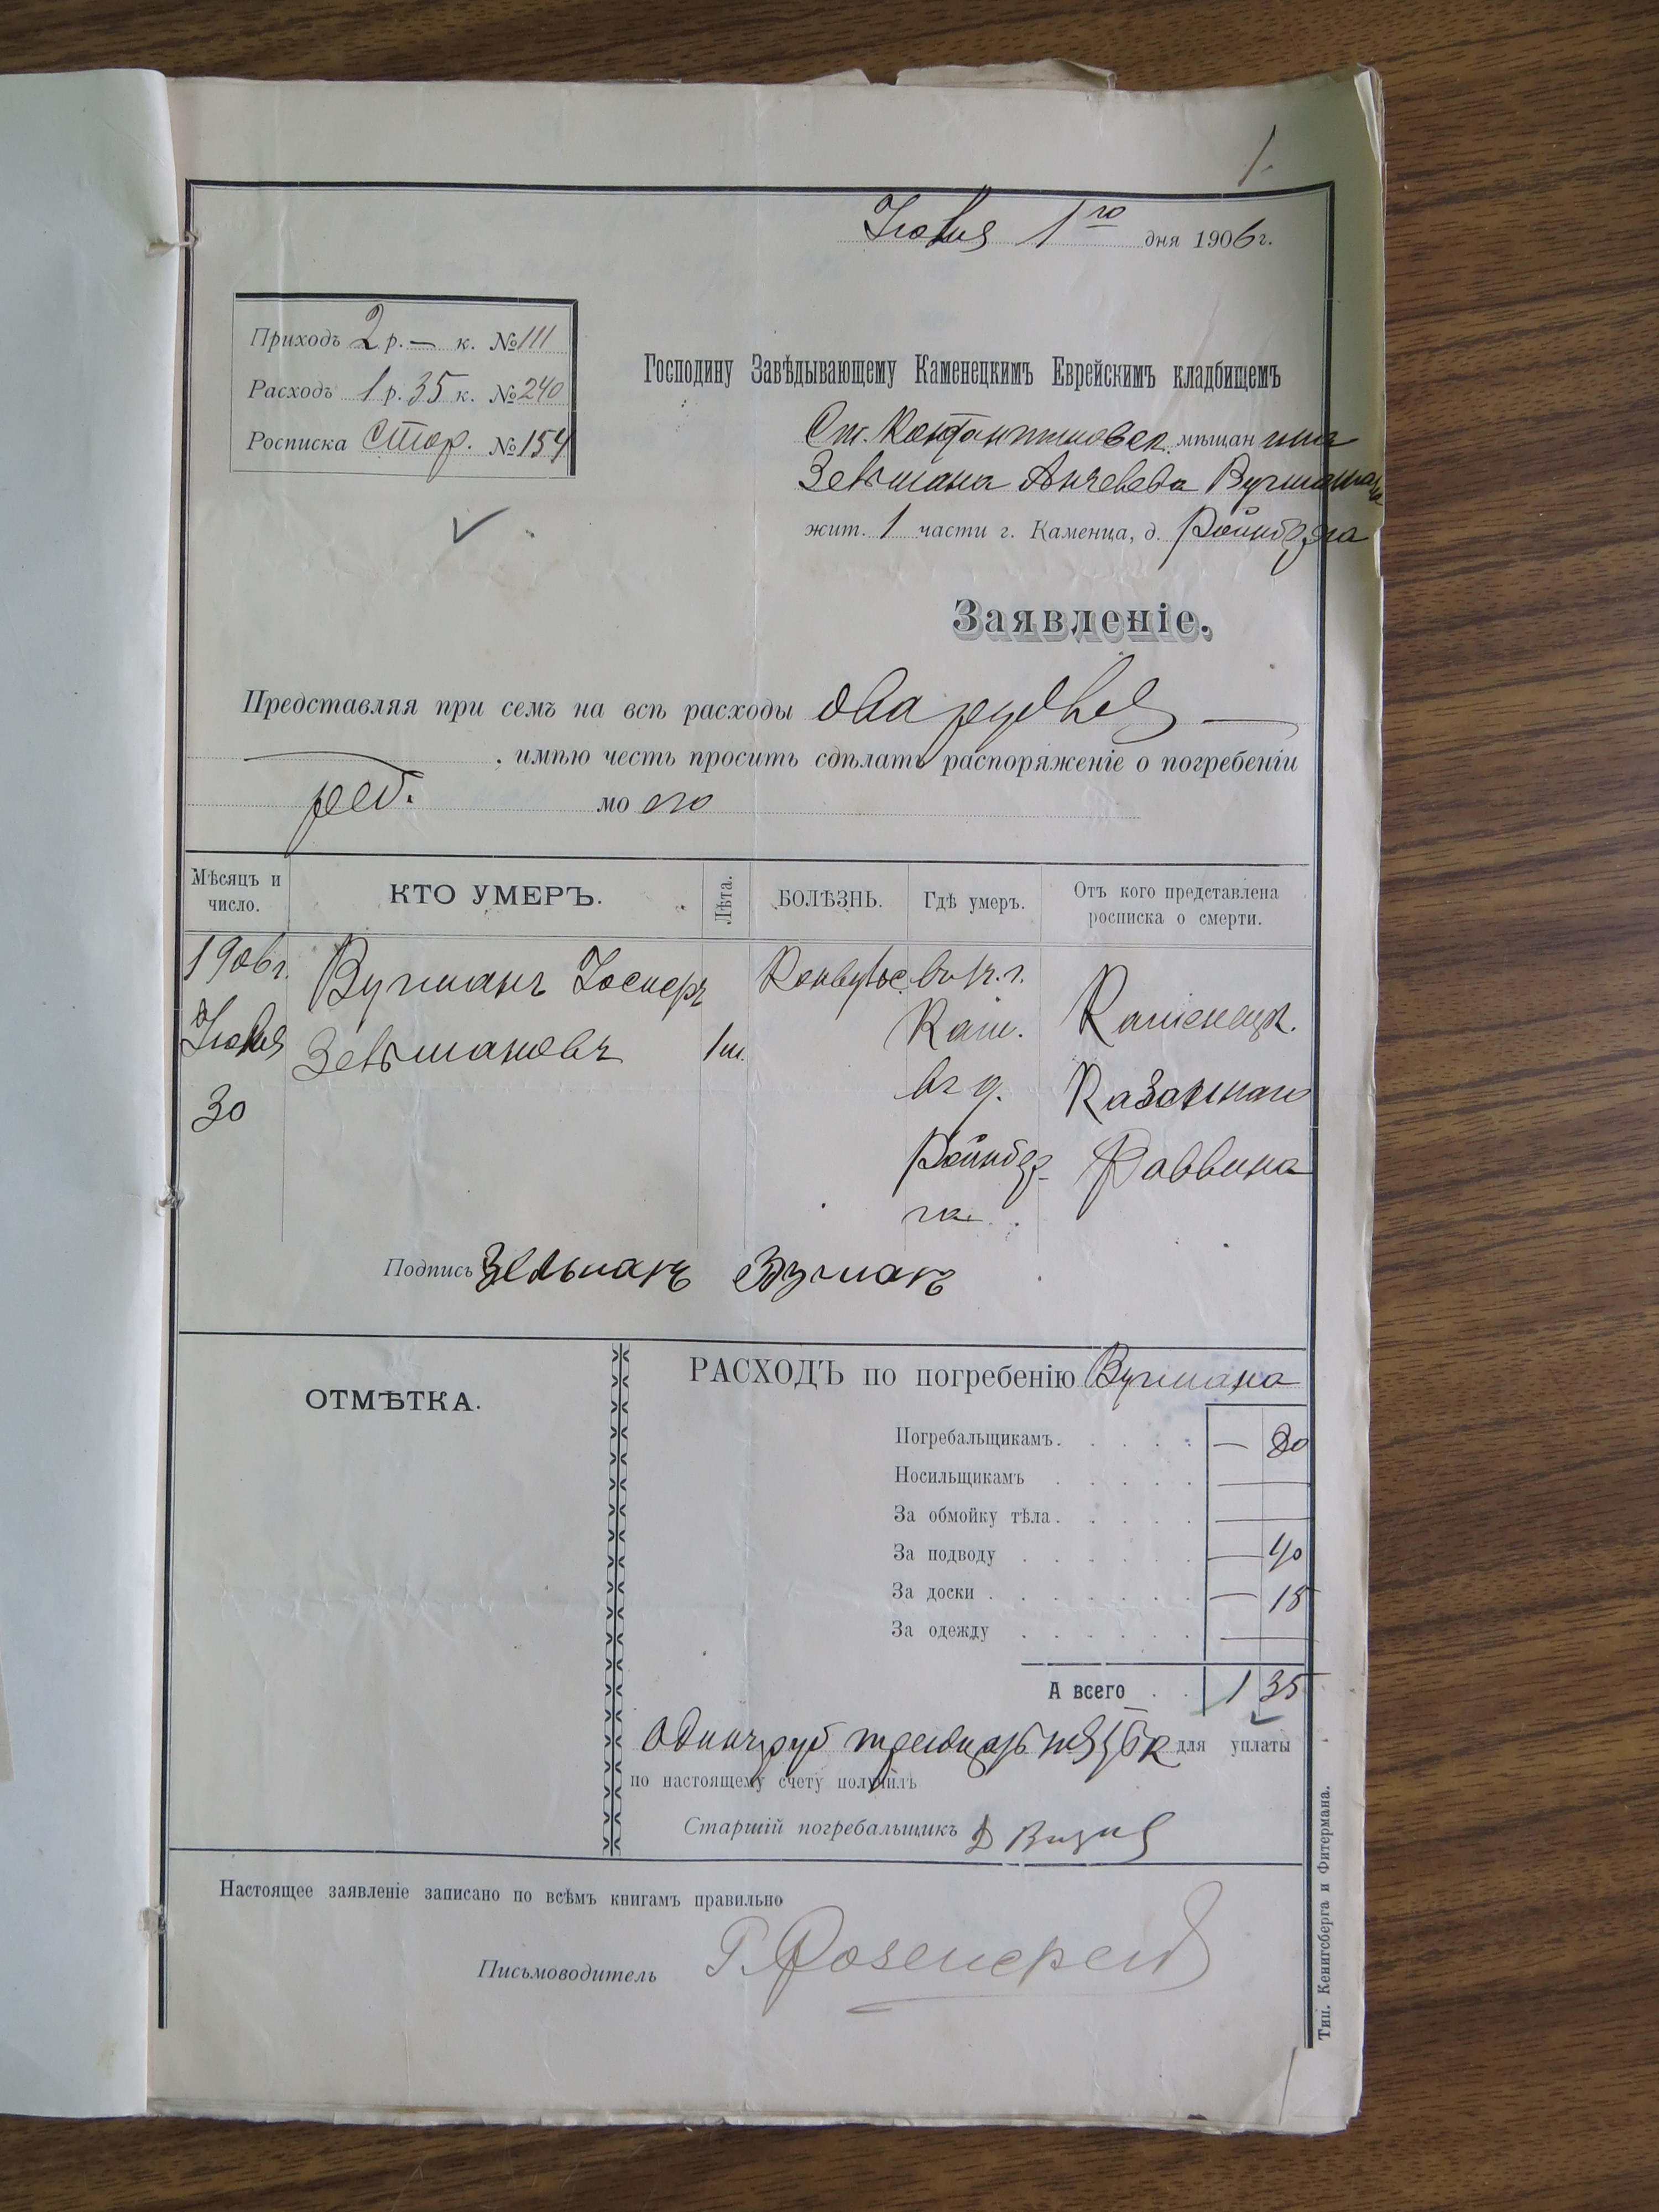 1.
Іюля 1го дня 1906 г.
Приходъ 2 р. — к. № 111
Расходъ 1 р. 35 к. № 240
Росписка Стор. № 154
Господину Завѣдывающему Каменецкимъ Еврейскимъ кладбищемъ
Ст. Константиновск. мѣщанина
Зельмана Анчелева Вугмана
жит. 1 части г. Каменца, д. Ройнберга
Заявленіе.
Представляя при семъ на всѣ расходы два рубля —
— , имѣю честь просить сдѣлать распоряженіе о погребеніи
реб. моего
Мѣсяцъ и число.
КТО УМЕРЪ.
Лѣта.
БОЛѢЗНЬ.
Гдѣ умеръ.
Отъ кого представлена росписка о смерти.
1906 г. Вугманъ Іосиеръ Конвульс. въ к. г.
Іюля Зельмановъ 1 м. Кам. Каменецк.
30 въ д. Казеннаго
Ройнбер- Раввина
га.
Подпись Зельманъ Вугманъ
ОТМѢТКА.
РАСХОДЪ по погребенію Вугмана
Погребальщикамъ. — 80
Носильщикамъ —
За обмойку тѣла. —
За подводу — 40
За доски . — 15
За одежду —
А всего 1 35
Одинъ руб тридцать пять к для уплаты
по настоящему счету получилъ
Старшій погребальщикъ
Настоящее заявленіе записано по всѣмъ книгамъ правильно
Письмоводитель
Тип. Кенигсберга и Фитермана.